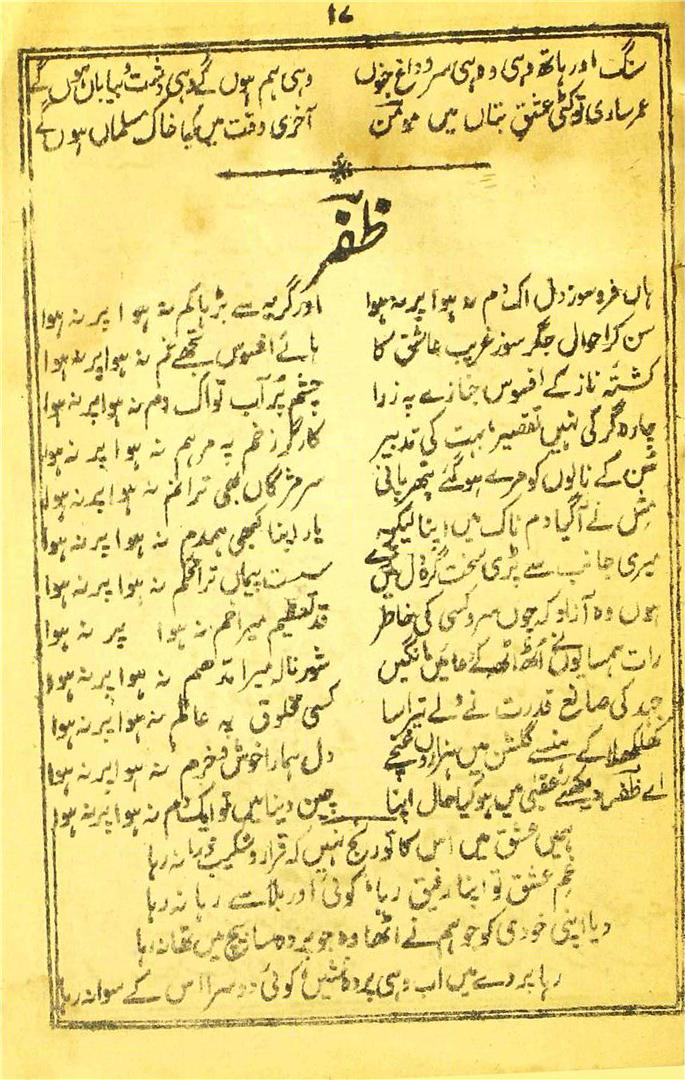 ۱۷
سنگ اور ہاتھ وہی وہ ہی سر و داغ جنوں وہی ہم ہوں گے وہی دشت و بیاباں ہوں گے
عمر ساری تو کٹی عشق بتاں میں مومن آخری وقت میں کیا خاک مسلماں ہوں گے
ظفر
ہاں فرو سوز دل اک دم نہ ہوا پر نہ ہوا اور گریہ سے بڑھا کم نہ ہوا پر نہ ہوا
سن کر احوال جگر سوز غریب عاشق کا ہائے افسوس تجھے غم نہ ہوا پر نہ ہوا
کشتۂ ناز کے افسوس جنازے پہ ذرا چشم پُر آب تو اک دم نہ ہوا پر نہ ہوا
چارہ گر کی نہیں تقصیر بہت کی تدبیر کارگر زخم پہ مرہم نہ ہوا پر نہ ہوا
کے نالوں کو مرے ہو گئے پتھر پانی سر مژگاں کبھی ترا نم نہ ہوا پر نہ ہوا
نے آ گیا دم ناک میں اپنا لیکن یار اپنا کبھی ہمدم نہ ہوا پر نہ ہوا
میری جانب سے پڑی سخت گرہ دل میں سست پیماں ترا محکم نہ ہوا پر نہ ہوا
ہوں وہ آزاد کہ جوں سرو کسی کی خاطر قد تعظیم میرا خم نہ ہوا پر نہ ہوا
رات ہمسایوں نے اُٹھ اٹھ کے دعائیں مانگیں شور نالہ میرا مدھم نہ ہوا پر نہ ہوا
کی صانع قدرت نے ترا سا کسی مخلوق پہ عالم نہ ہوا پر نہ ہوا
کھلکھلا کے ہنسے گلشن میں ہزاروں غنچے دل ہمارا خوش و خرم نہ ہوا پر نہ ہوا
اے ظفر دیکھئے عقبیٰ میں ہو کیا حال اپنا چین دنیا میں تو ایک دم نہ ہوا پر نہ ہوا
ہمیں عشق میں اس کا تو رنج نہیں کہ قرار و شکیب ذرا نہ رہا
غم عشق تو اپنا رفیق رہا، کوئی اور بلا سے رہا نہ رہا
دیا اپنی خودی کو جو ہم نے اٹھا وہ جو پردہ سا بیچ میں تھا نہ رہا
رہا پردے میں اب وہی پردہ نشیں کوئی دوسرا اس کے سوا نہ رہا